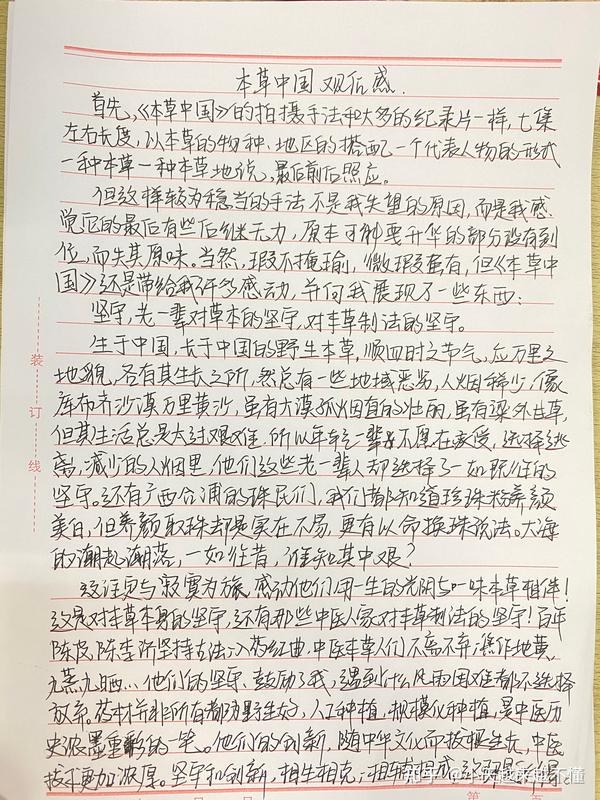 本草中国 观后感.
首先,《本草中国》的拍摄手法和大多的纪录片一样,七集
左右长度,以本草的物种、地区的搭配一个代表人物的形式
一种本草一种本草地说,最后前后照应。
但这样较为稳当的手法不是我失望的原因,而是我感
觉它的最后有些后继无力,原本可能要升华的部分没有到
位,而失其原味。当然,瑕不掩瑜,微瑕虽有,但《本草中
国》还是带给我许多感动,并向我展现了一些东西:
坚守,老一辈对草本的坚守,对本草制法的坚守。
生于中国,长于中国的野生本草,顺四时之节气,应万里之
地貌,各有其生长之所,然总有一些地域恶劣,人烟稀少,像
库布齐沙漠万里黄沙,虽有大漠孤烟直的壮丽,虽有梁外甘草,
但其生活总是太过艰难,所以年轻一辈不愿在承受,选择逃
离,减少的人烟里,他们这些老一辈人却选择了一如既往的
坚守。还有广西合浦的珠民们,我们都知道珍珠粉养颜
美白,但养颜取珠却是实在不易,更有以命换珠说法。大海
的潮起潮落,一如往昔,谁知其中艰?
这注定与寂寞为旅,感动他们用一生的光阴与一味本草相伴!
这是对本草本身的坚守,还有那些中医人家对本草制法的坚守!百年
陈皮,陈李济坚持古法,古药红曲,中医本草人们不离不弃,焦作地黄,
九蒸九晒...他们的坚守,鼓励了我,遇到什么风雨困难都不选择
放弃。药材并非所有都为野生的,人工种植,规模化种植,是中医历
史浓墨重彩的一笔。他们的创新,随中华文化而拔根生长,中医
技术更加浓厚。坚守和创新,相生相克,相辅相成,这
装
订
线
知乎